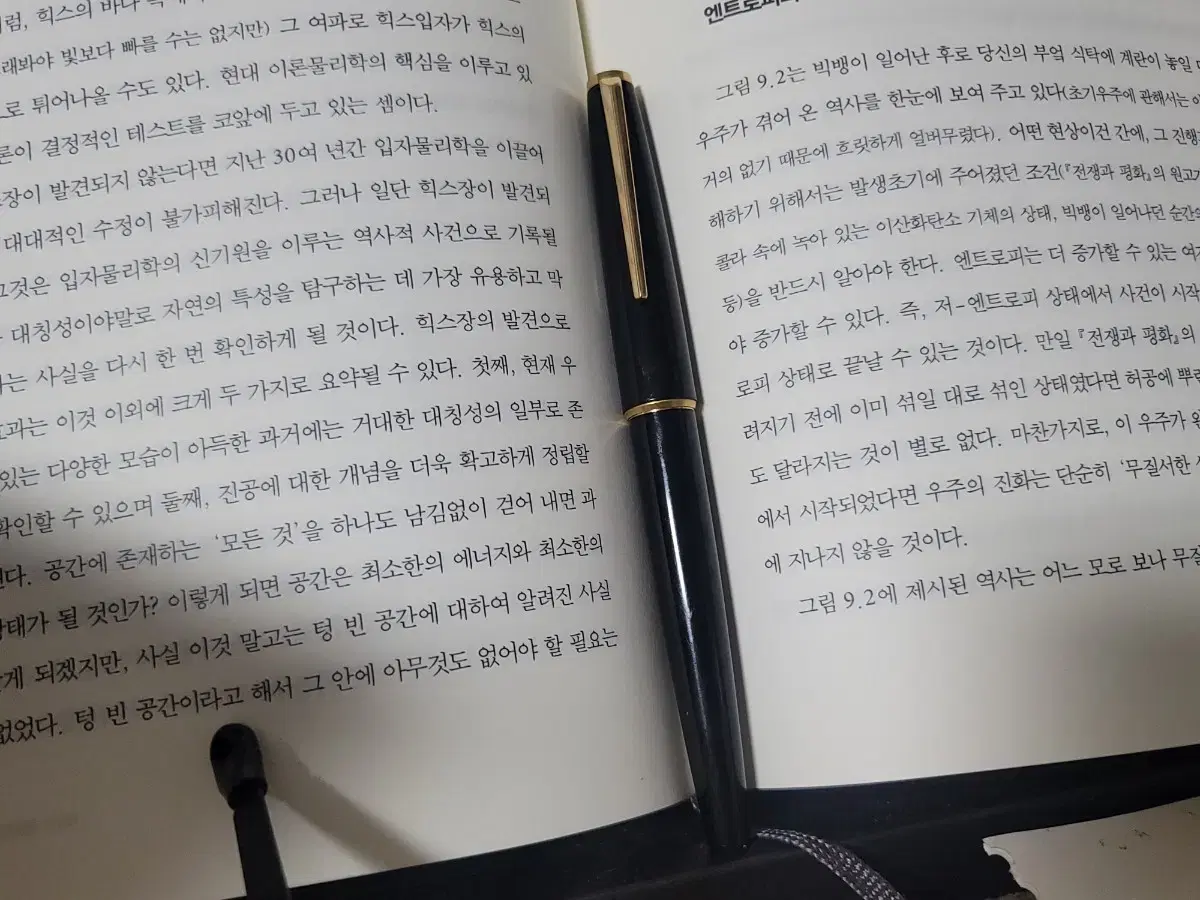 힉스의 바다
빠를 수는 없지만) 그 여파로 힉스입자가 힉스의
로 튀어나올 수도 있다. 현대 이론물리학의 핵심을 이루고 있
론이 결정적인 테스트를 코앞에 두고 있는 셈이다.
장이 발견되지 않는다면 지난 30여 년간 입자물리학을 이끌어
대대적인 수정이 불가피해진다. 그러나 일단 힉스장이 발견되
그것은 입자물리학의 신기원을 이루는 역사적 사건으로 기록될
대칭성이야말로 자연의 특성을 탐구하는 데 가장 유용하고 막
라는 사실을 다시 한 번 확인하게 될 것이다. 힉스장의 발견으로
효과는 이것 이외에 크게 두 가지로 요약될 수 있다. 첫째, 현재 우
있는 다양한 모습이 아득한 과거에는 거대한 대칭성의 일부로 존
확인할 수 있으며 둘째, 진공에 대한 개념을 더욱 확고하게 정립할
된다. 공간에 존재하는 ‘모든 것’을 하나도 남김없이 걷어 내면 과
상태가 될 것인가? 이렇게 되면 공간은 최소한의 에너지와 최소한의
게 되겠지만, 사실 이것 말고는 텅 빈 공간에 대하여 알려진 사실
없었다. 텅 빈 공간이라고 해서 그 안에 아무것도 없어야 할 필요는
엔트로피
그림 9.2는 빅뱅이 일어난 후로 당신의 부엌 식탁에 계란이 놓일
우주가 겪어 온 역사를 한눈에 보여 주고 있다(초기우주에 관해서는
거의 없기 때문에 흐릿하게 얼버무렸다). 어떤 현상이건 간에, 그 진행
해하기 위해서는 발생초기에 주어졌던 조건(『전쟁과 평화』의 원고
콜라 속에 녹아 있는 이산화탄소 기체의 상태, 빅뱅이 일어나던 순간의
등)을 반드시 알아야 한다. 엔트로피는 더 증가할 수 있는 여
야 증가할 수 있다. 즉, 저-엔트로피 상태에서 사건이 시작
로피 상태로 끝날 수 있는 것이다. 만일 『전쟁과 평화』의
려지기 전에 이미 섞일 대로 섞인 상태였다면 허공에 뿌
도 달라지는 것이 별로 없다. 마찬가지로, 이 우주가
에서 시작되었다면 우주의 진화는 단순히 ‘무질서한
에 지나지 않을 것이다.
그림 9.2에 제시된 역사는 어느 모로 보나 무질